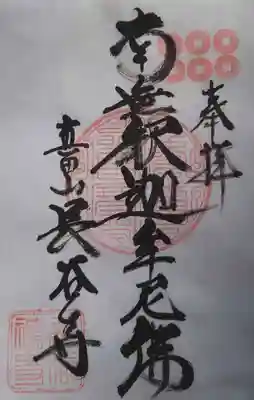 奉拝
南無釈迦牟尼佛
真田山長谷寺